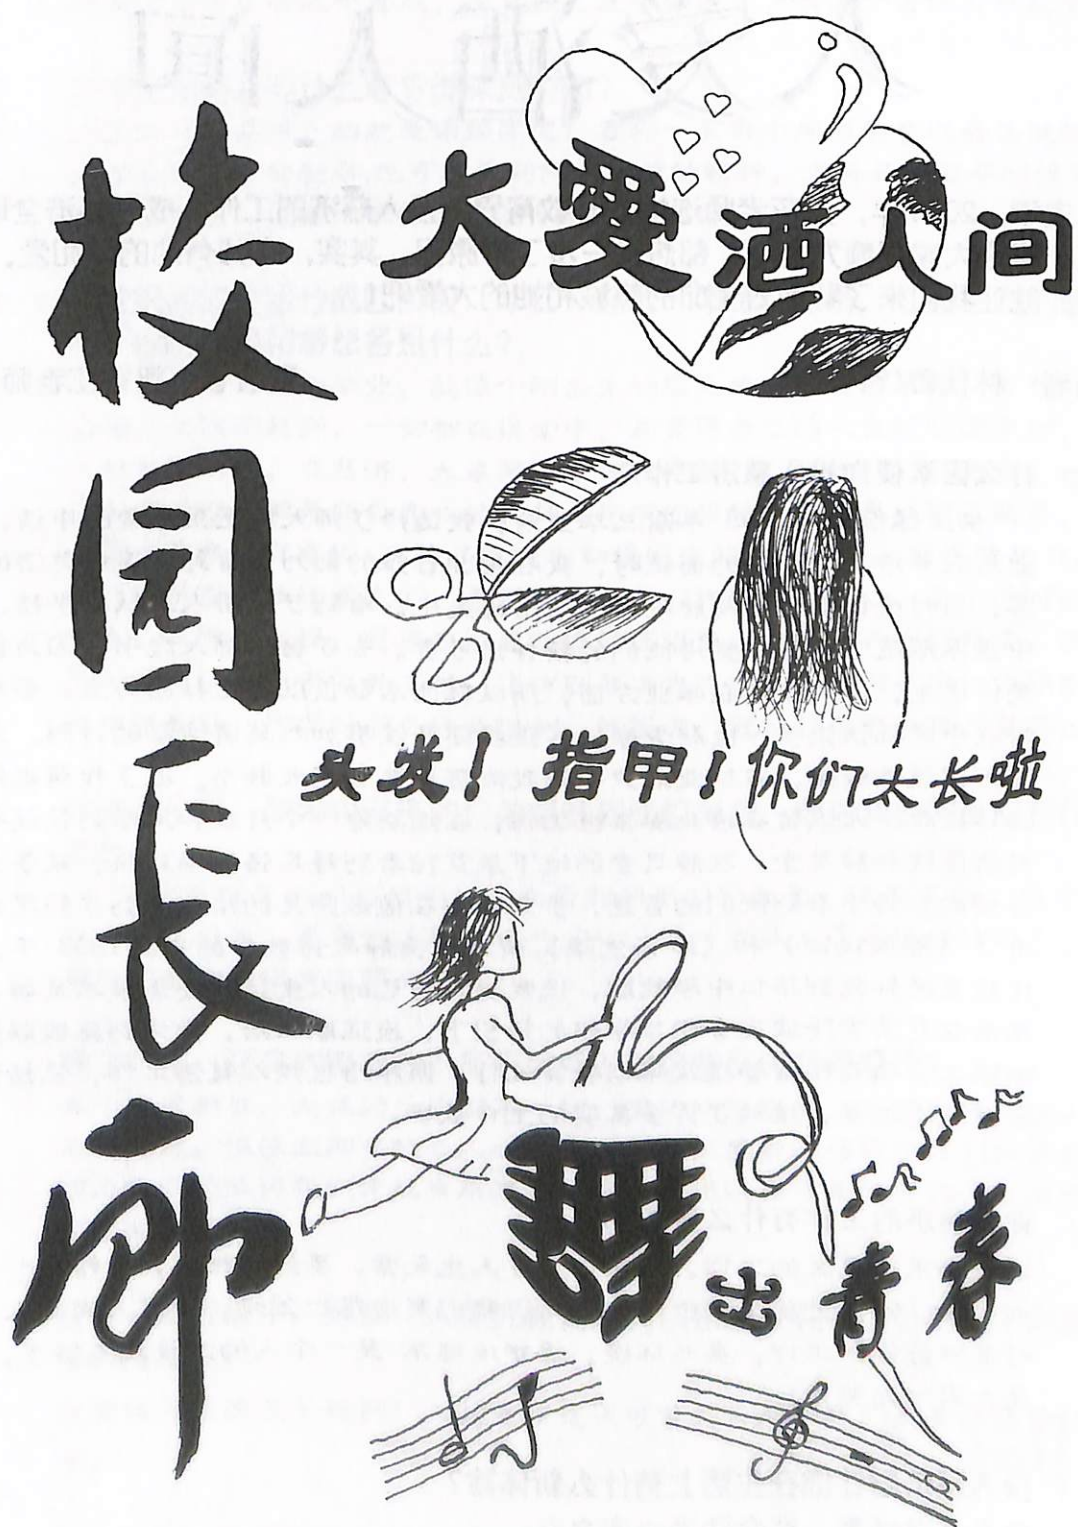 校园长廊
大爱洒人间
头发！指甲！你们太长啦
舞出青春